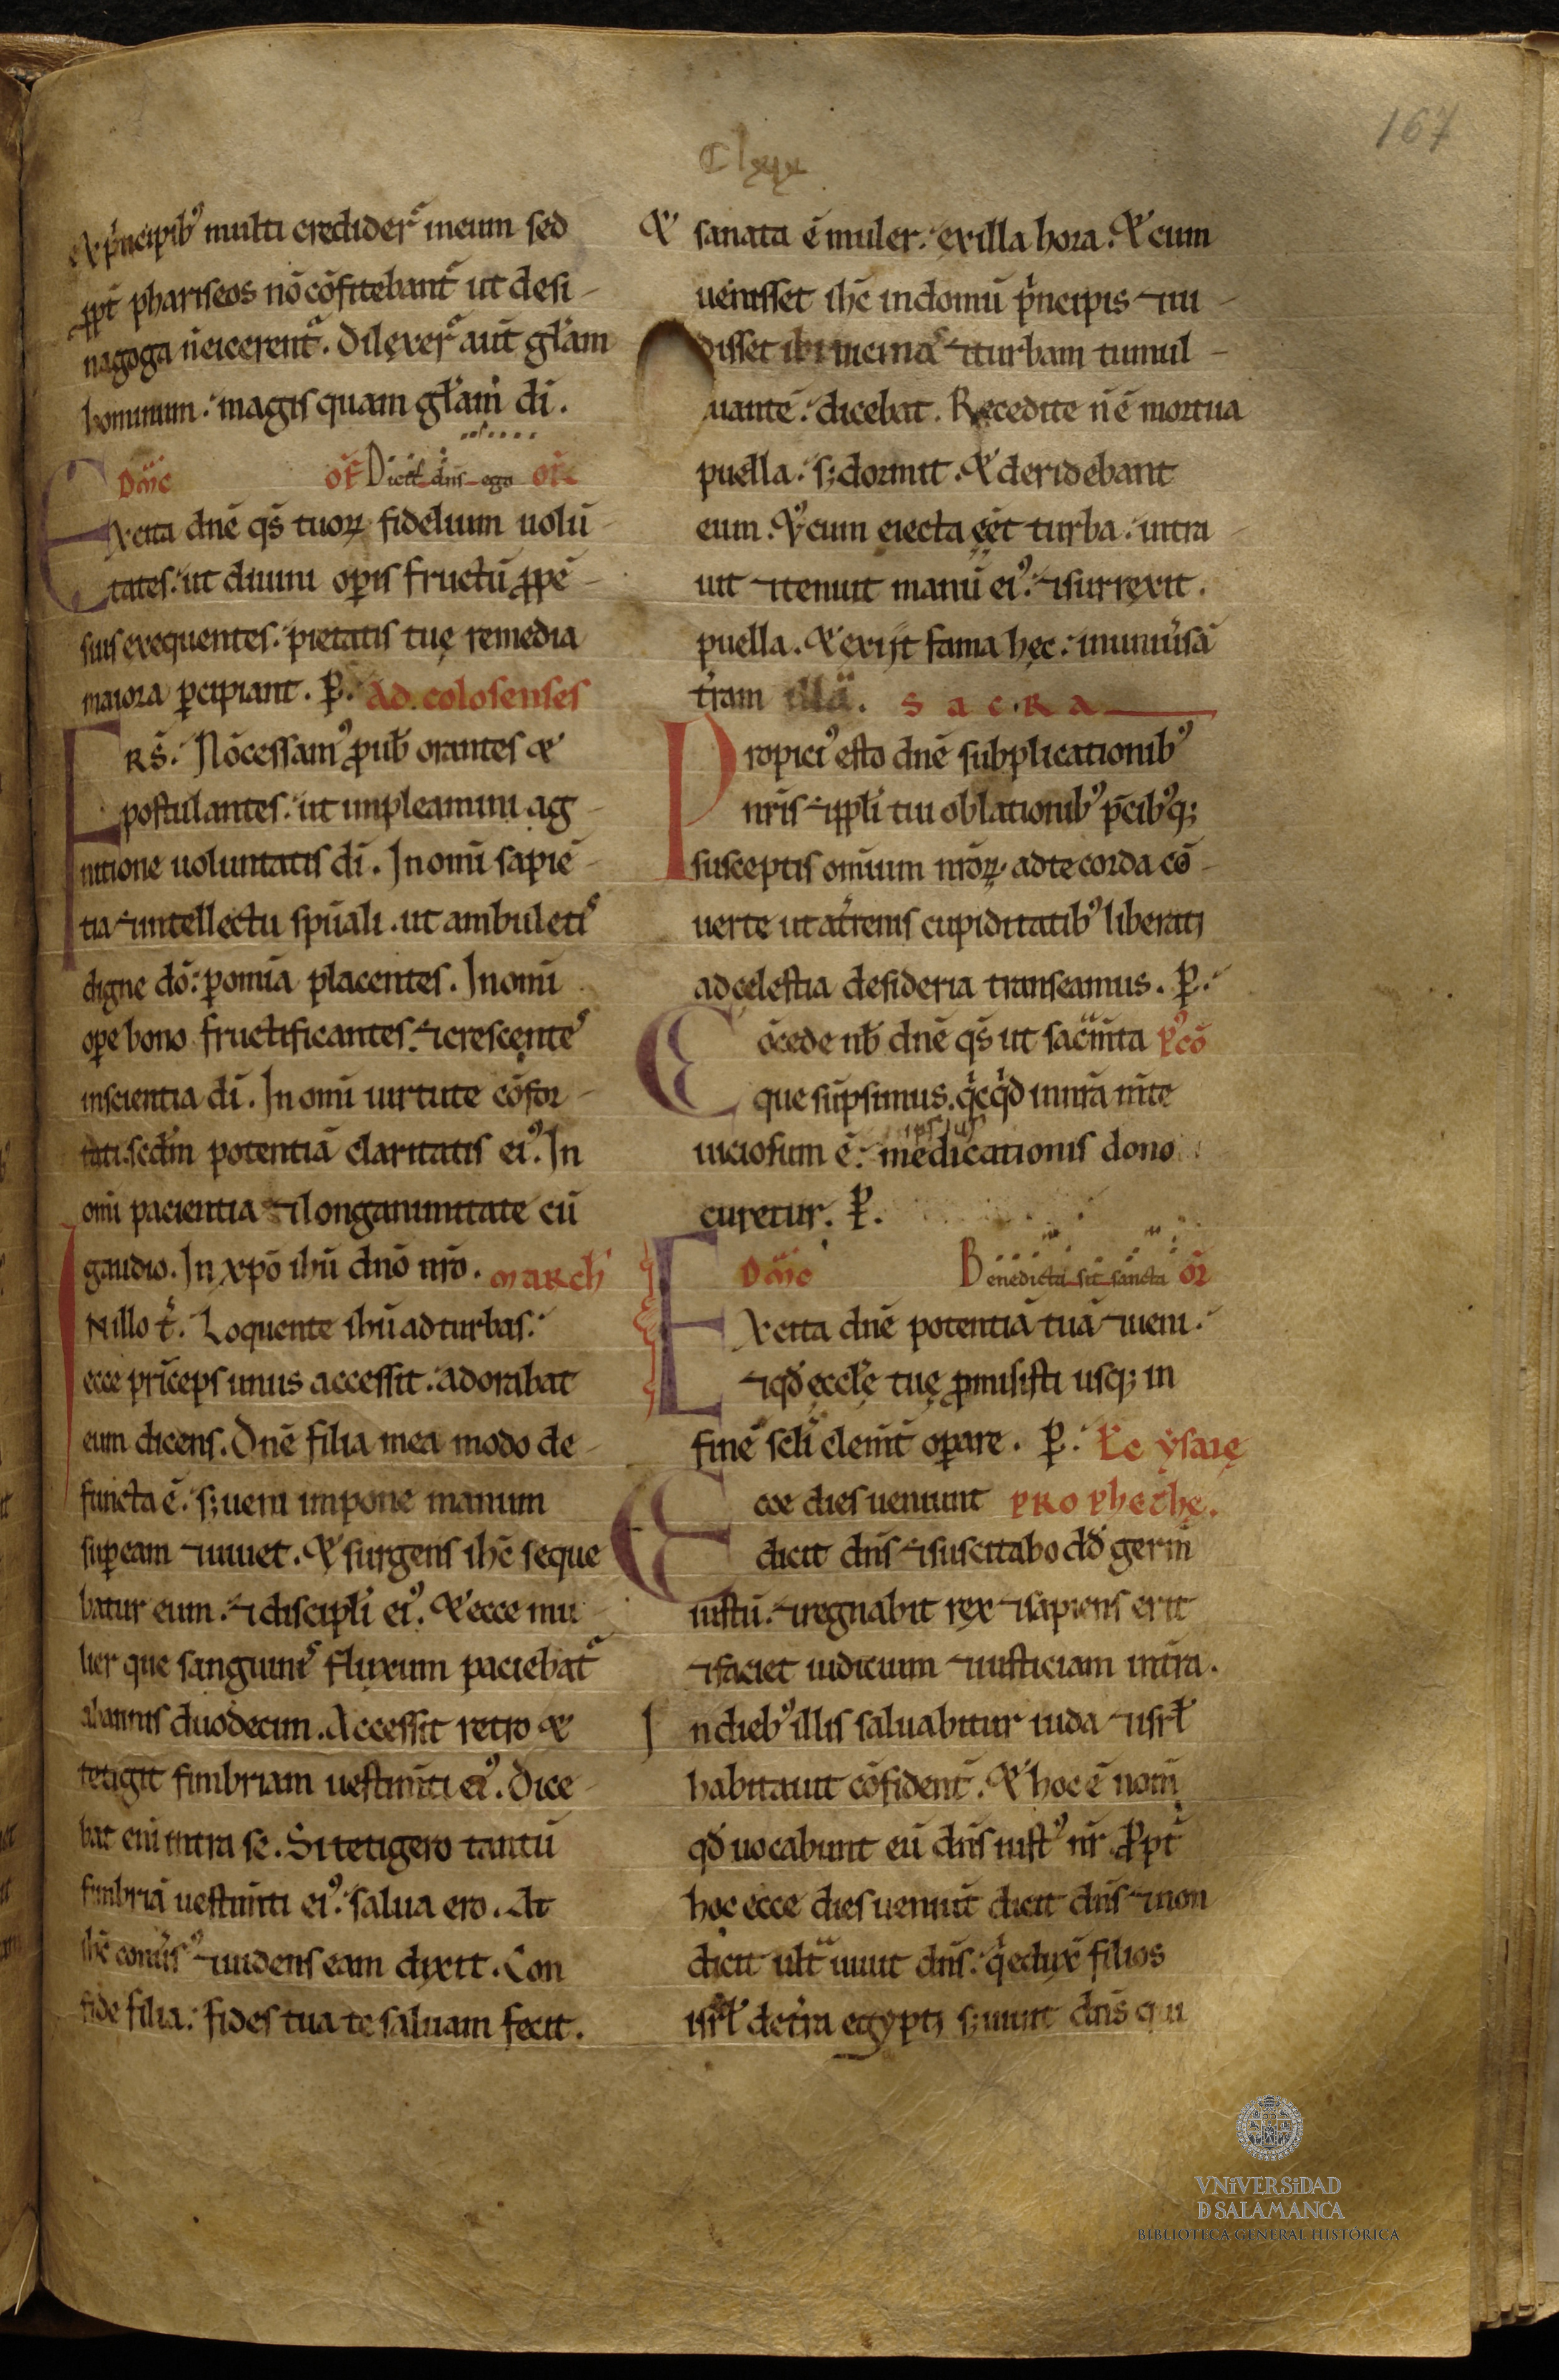 167
Clxxx
Ex p̃ncipib᷒ multi credider̃ in eum sed
ꝓpt̃ phariseos nõ cõfitebant̃ ut de si
nagoga ñ eicerent̃. Dilexer̃ aut̃ gl̃am
hominum: magis quam gl̃am di̇.
Dñic of̃ Dicit dñs ego or̃
Excita dnẽ qs̃ tuoꝝ fidelium uolũ
tates: ut diuini oꝑis fructũ ꝓpẽ
sius exequentes: pietatis tuę remedia
maiora ꝑcipiant. P̱. Ad colosenses
FRS̃. Nõ cessam᷒ ꝓ uob̃ orantes et
postulantes: ut impleamini ag
nitione uoluntatis di̇. In omi̇ sapiẽ
tia ⁊ intellectu spũali. ut ambuleti᷒
digne dõ: ꝑ omĩa placentes. In omĩ
oꝑe bono fructificantes: ⁊ crescente᷒
in scientia di̇. In omĩ uirtute cõfor
tati. sedm̃ potentiã claritatis ei᷒. In
omĩ pacientia ⁊ longanimitate cũ
gaudio. In xp̃o ihũ dnõ nr̃o. March̃
IN illo t̃. Loquente ihũ ad turbas:
ecce prĩceps unus accessit: adorabat
eum dicens. Dnẽ filia mea modo de
functa ẽ. s; ueni impone manum
suꝑ eam ⁊ uiuet. Et surgens ihc̃ seque
batur eum: ⁊ discipli̇ ei᷒. Et ecce mu
lier que sanguini᷒ fluxum paciebat̃
ab annis duodecim. Accessit retro et
tetigit fimbriam uestim̃ti ei᷒. Dice
bat eni̇ intra se. Si tetigero tantũ
fimbriã uestim̃ti ei᷒: salua ero. At
ihc̃ conũs᷒ ⁊ uidens eam dixit. Con
fide filia: fides tua te saluam fecit.
Et sanata ẽ muler: ex illa hora. Et cum
uenisset ihc̃ in domũ p̃ncipis ⁊ ui
disset ⁊ turbam tumul
tuantẽ: dicebat. Recedite ñ ẽ mortua
puella: s; dormit. Et deridebant
eum. Et cum eiecta eẽt turba: intra
uit ⁊ tenuit manũ ei᷒: ⁊ surrexit.
puella. Et exijt fama hęc: in uniũsã
tr̃am illã. SACRA
Propici᷒ esto dnẽ subplicationib᷒
nr̃is ⁊ ppli̇ tui oblationib᷒ p̃cib᷒q;
susceptis omĩum nr̃oꝝ ad te corda cõ
uerte ut a tr̃enis cupiditatib᷒ liberati
ad celestia desideria transeamus. P̱.
Cõcede nb̃ dnẽ qs̃ ut sacm̃ta p᷒cõ
que sũpsimus. qc̃q̃d in nr̃a m̃te
ipsius
uiciosum ẽ: medicationis dono
curetur. P̱.
Dñic Benedicta sit sancta or̃
Excita dnẽ potentiã tuã ⁊ ueni:
⁊ qđ ęccl̃ę tuę ꝓmisisti usq; in
finẽ scli̇ clem̃t̃ oꝑare. P̱. Lc̃ ysaię
Ecce dies ueniunt prophethę.
dicit dñs ⁊ suscitabo dđ germĩ
iustũ: ⁊ regnabit rex ⁊ sapiens erit
⁊ faciet iudicium ⁊ iusticiam in tr̃a.
In dieb᷒ illis saluabitur iuda ⁊ isrl̃
habitauit cõfident̃. Et hoc ẽ nomĩ
qđ uocabunt eũ dñs iust᷒ nr̃. Propt̃
hoc ecce dies ueniũt dicit dñs ⁊ non
dicit ult̃ uiuit dñs: q̃ eduxẽ filios
isrl̃ de tr̃a egypti s; uiuit dñs qui
VNiVERSiDAD
D SALAMANCA
BIBLIOTECA GENERAL HISTÓRICA